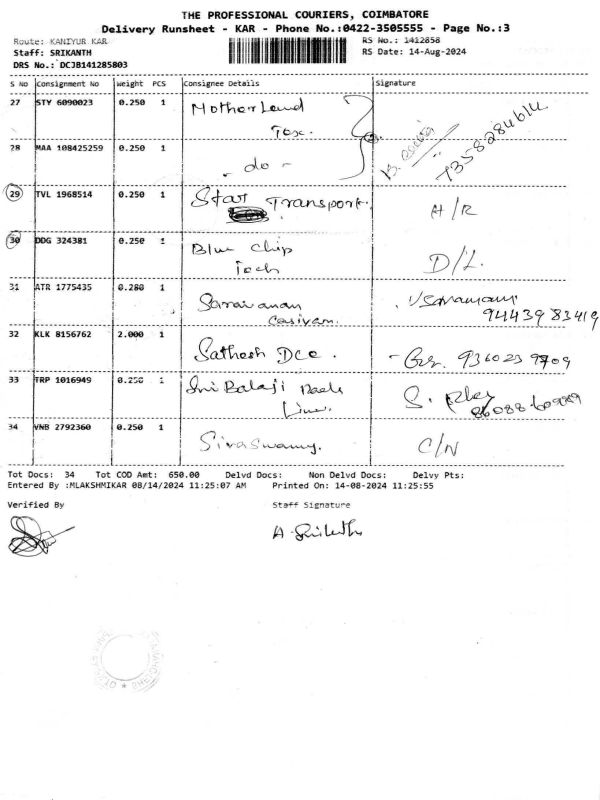 THE PROFESSIONAL COURIERS, COIMBATORE
Delivery Runsheet - KAR - Phone No.:0422-3505555 - Page No.:3
Route: KANIYUR KAR RS No.: 1412858
Staff: SRIKANTH RS Date: 14-Aug-2024
DRS No.: DCJB141285803
S No Consignment No Weight PCS Consignee Details Signature
27 STY 6090023 0.250 1 Motherland
Tex. 7358284614
28 MAA 108425259 0.250 1 - do -
29 TVL 1968514 0.250 1 Star Transport. A/R
30 DDG 324381 0.250 1 Blue Chip
Tech D/L.
31 ATR 1775435 0.280 1 Saravanan
94439 83419
32 KLK 8156762 2.000 1 Sathesh Dce. 9360239709
33 TRP 1016949 0.250 1 Sri Balaji
Line. S.
34 VNB 2792360 0.250 1 Sivaswamy. C/N
Tot Docs: 34 Tot COD Amt: 650.00 Delvd Docs: Non Delvd Docs: Delvy Pts:
Entered By :MLAKSHMIKAR 08/14/2024 11:25:07 AM Printed On: 14-08-2024 11:25:55
Verified By Staff Signature
A. Srikanth